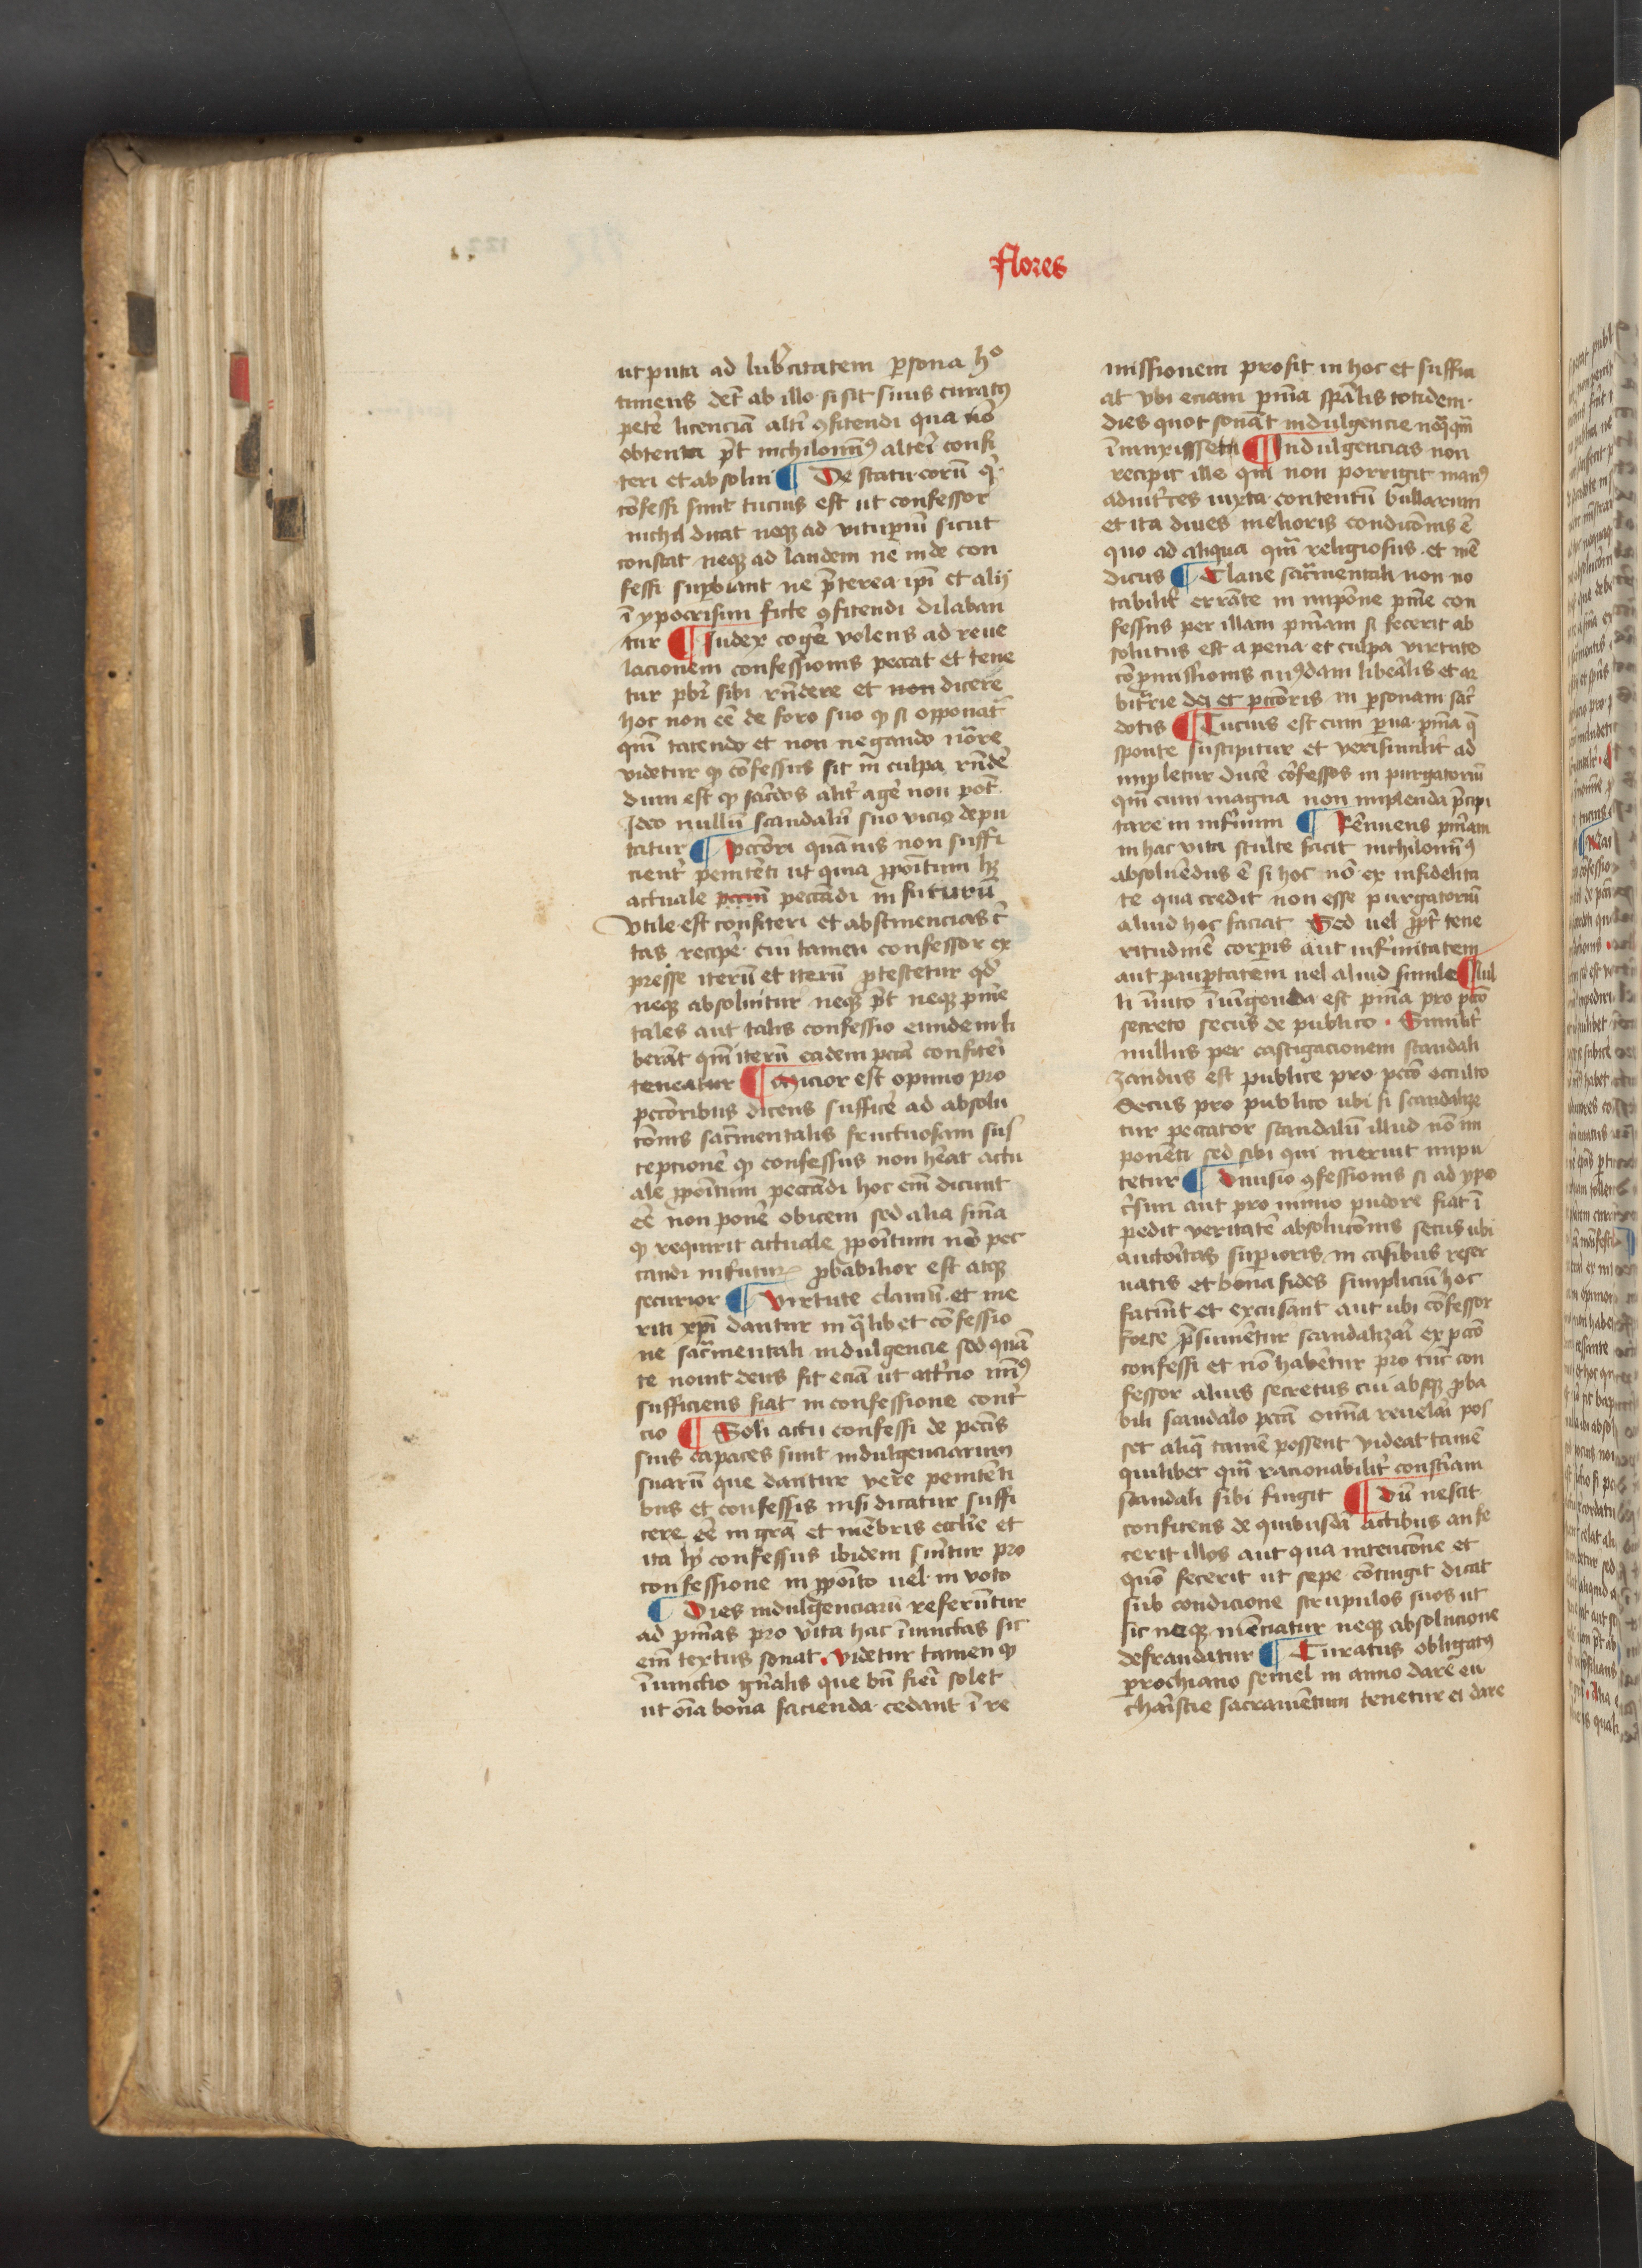 flores
ut puta ad lubͬicitatem ꝑsona hͦ
timens det̄ ab illo si sit suus curatꝰ
pet̄e licenciā alt̄i ꝯfitendi qua nō
obtenta p̄t nichilomīꝰ alteī confi
teri et absolui ¶ De statu eorū qͥ
cōfessi sunt tucius est ut confessor
nichil dicat neqꝫ ad vituꝑiū sicut
constat neqꝫ ad laudem ne inde con
fessi suꝑbiant ne p̄terea ip̄i et alij
ī ypocrisim ficte ꝯfitendi dilaban
tur ¶ Judex cogē volens ad reue
lacionem confessionis peccat et tene
tur pb̄r sibi rn̄dere et non dicere
hoc non eē de foro suo qꝫ si opponat̄
qm̄ tacendo et non negando
videtur ꝙ cōfessus sit in culpa rn̄dē
dum est ꝙ sac̄dos alit̄ agē non pōt
Ideo nullū scandalū suo vicio depu
tatur ¶ Pccōri quāuis non suffi
cient̄ penitēti ut quia ꝓpoītum hꝫ
actuale pccm̄ peccādi in futurū
Vtile est confiteri et abstinencias c̄
tas recipē cui tamen confessor ex
presse iterū et iterū ꝓtestetur qd̄
neqꝫ absoluitur neqꝫ p̄t neqꝫ pn̄ie
tales aut talis confessio eundem li
berāt qm̄ iterū eadem pccā confiteī
teneatur ¶ Micior est opinio pro
pccōribus dicens sufficē ad absolu
cōnis sac̄mentalis fructuosam sus
cepcionē ꝙ confessus non hēat actu
ale ꝓpoītum peccādi hoc em̄ dicunt
eē non ponē obicem sed alia sn̄ia
ꝙ requirit actuale ꝓpoītum nō pec
candi in futurꝫ ꝓbabilior est atqꝫ
securior ¶ Virtute clauiū et me
riti xp̄i dantur in qͣlibet cōfessio
ne sac̄mentali indulgencie sed quā
te nouit deus fit eciā ut att̄cio mīꝰ
sufficiens fiat in confessione cont̄
cio ¶ Soli actu confessi de pccīs
suis capaces sunt indulgenciarum
suarū que dantur vere penitēti
bus et confessis nisi dicatur suffi
cere eē in grā et mēbris ecclīe et
ita ly confessus ibidem sūitur pro
confessione in ꝓpoīto uel in voto
¶ Dies indulgenciarū referūtur
ad pn̄ias pro vita hac īiunctas sic
em̄ textus sonat. Videtur tamen ꝙ
īiunctio gn̄alis que bn̄ fieī solet
ut oīa bona facienda cedant ī re
missionem prosit in hoc et suffici
at vbi eciam pn̄ia spālis totidem
dies quot sonāt indulgencie nūqͣꝫ
īiunxissetur ¶ Indulgencias non
recipit ille qui non porrigit manꝰ
adiutͥces iuxta contentū bullarum
et ita diues melioris condicōnis ē
quo ad aliqua qm̄ religiosus et mē
dicus ¶ Claue sac̄mentali non no
tabilit̄ errāte in impōne pn̄ie con
fessus per illam pn̄iam si fecerit ab
solutus est a pena et culpa virtute
cōpmissionis cuiꝰdam libealis et ar
bitrͥie dei et pccōris in ꝑsonam sac̄
dotis ¶ Tucius est cum ꝑua pn̄ia q̄
sponte suscipitur et verisimilit̄ ad
impletur ducē cōfessos in purgatoriū
qm̄ cum magna non implenda p̄cipi
tare in infernum ¶ Rēnuens pn̄iam
in hac vita stulte facit nichilomīꝰ
absoluēdus ē si hoc nō ex infidelita
te qua credit non esse purgatoriū
aliud hoc faciat Sed uel ꝓpt̄ tene
ritudinē corꝑis aut infirmitatem
aut pauꝑtatem uel aliud simile ¶ Nul
li īuito īiungenda est pn̄ia pro pccō
secreto secus de publico. Similit̄
nullus per castigacionem scandali
zandus est publice pro pccō occulto
Secus pro publico ubi si scandalize
tur peccator scandalū illud nō im
ponēti sed sibi qui meruit impu
tetur ¶ Diuisio ꝯfessionis si ad ypo
cͥsim aut pro nimio pudore fiat ī
pedit veritatē absolucōnis secus ubi
auctoītas suꝑioris in casibus reser
uatis et bona fides simpliciū hoc
faciūt et excusant aut ubi cōfessor
forte p̄sumētur scandalizaī ex pccō
confessi et nō habētur pro tūc con
fessor alius secretus cui absqꝫ ꝓba
bili scandalo pccā omīa reuelaī pos
set aliqͣ tamē possent videat tamē
quilibet qm̄ racionabilit̄ consciam
scandali sibi fingit ¶ Dū nescit
confitens de quibusdā actibus an fe
cerit illos aut qua intencōne et
quō fecerit ut sepe contingit dicat
sub condicione scrupulos suos ut
sic neqꝫ mēciatur neqꝫ absolucione
defraudatur ¶ Curatus obligatꝰ
ꝑrochiano semel in anno darē eu
charistie sacramētum tenetur ei dare